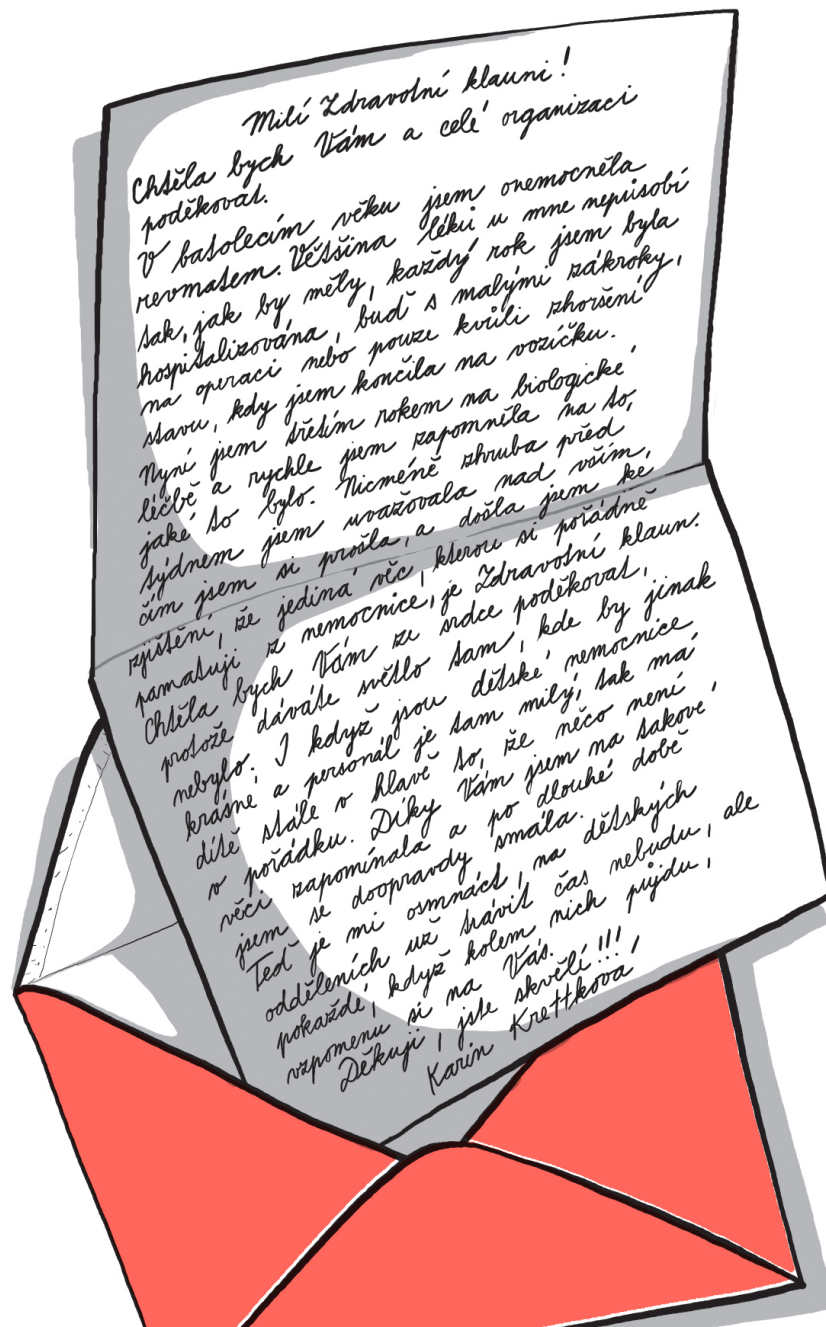 Milí Zdravotní klauni!
Chtěla bych Vám a celé organizaci
poděkovat.
V batolecím věku jsem onemocněla
revmatem. Většina léků u mne nepůsobí
tak, jak by měly, každý rok jsem byla
hospitalizována, buď s malými zákroky,
na operaci nebo pouze kvůli zhoršení
stavu, kdy jsem končila na vozíčku.
Nyní jsem třetím rokem na biologické
léčbě a rychle jsem zapomněla na to,
jaké to bylo. Nicméně zhruba před
týdnem jsem uvažovala nad vším,
čím jsem si prošla, a došla jsem ke
zjištění, že jediná věc, kterou si pořádně
pamatuji z nemocnice, je Zdravotní klaun.
Chtěla bych Vám ze srdce poděkovat,
protože dáváte světlo tam, kde by jinak
nebylo. I když jsou dětské nemocnice
krásné a personál je tam milý, tak má
dítě stále v hlavě to, že něco není
v pořádku. Díky Vám jsem na takové
věci zapomínala a po dlouhé době
jsem se doopravdy smála.
Teď je mi osmnáct, na dětských
odděleních už trávit čas nebudu, ale
pokaždé, když kolem nich půjdu,
vzpomenu si na Vás.
Děkuji, jste skvělí!!!
Karin Krettková